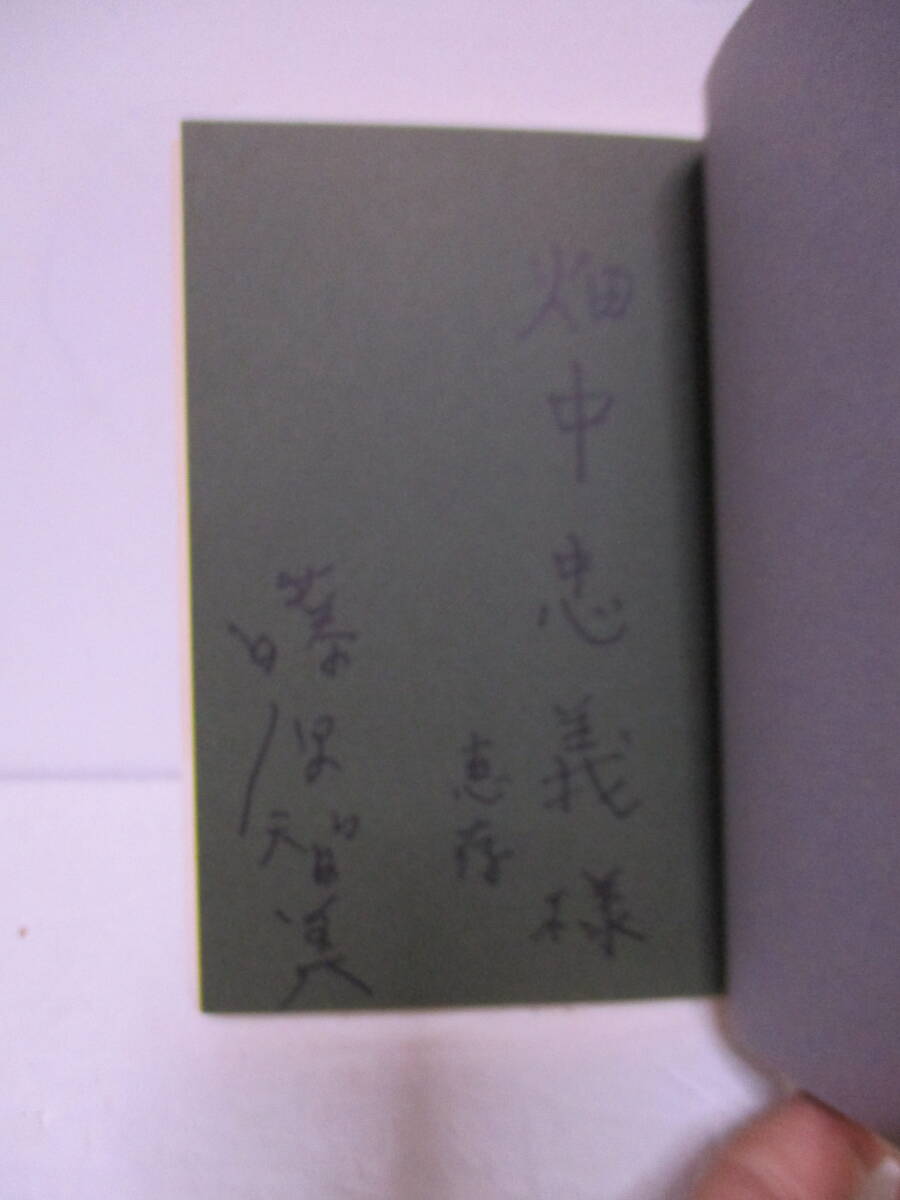 畑中忠義様
恵存
藤保智美